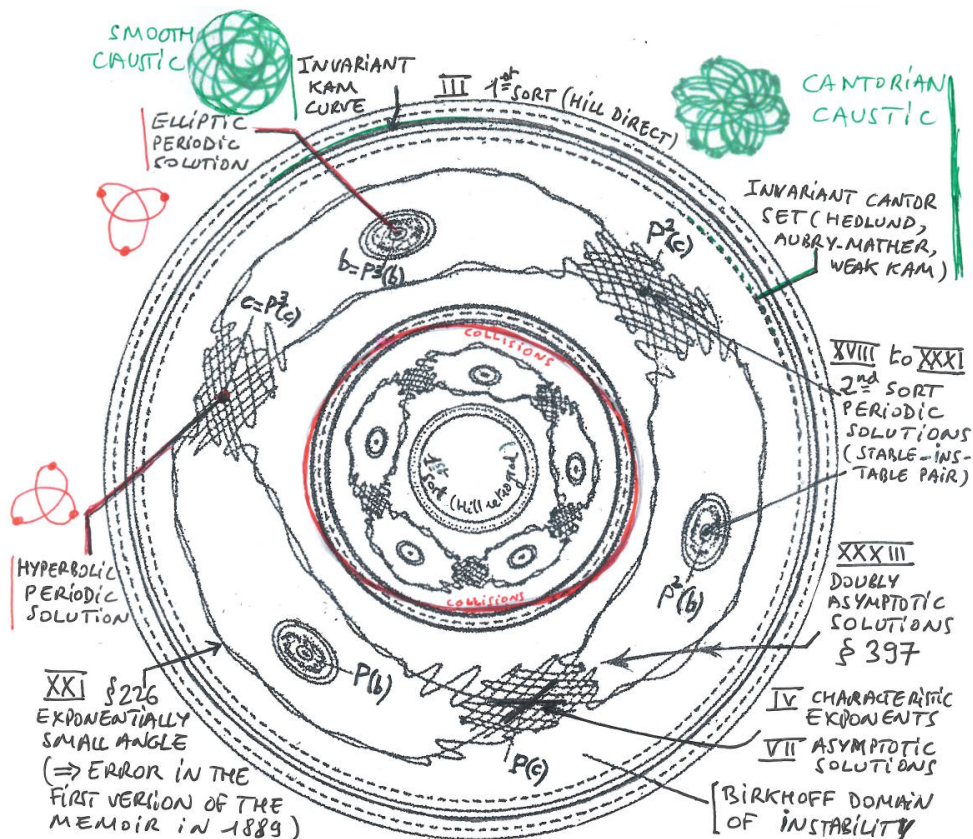 SMOOTH
CAUSTIC
INVARIANT
KAM
CURVE
III 1st SORT (HILL DIRECT)
CANTORIAN
CAUSTIC
ELLIPTIC
PERIODIC
SOLUTION
INVARIANT CANTOR
SET (HEDLUND,
AUBRY-MATHER,
WEAK KAM)
b=P³(b)
P²(c)
c=P³(c)
COLLISIONS
XVIII to XXXI
2nd SORT
PERIODIC
SOLUTIONS
(STABLE-INS-
TABLE PAIR)
1st
sort (Hill retrograd)
HYPERBOLIC
PERIODIC
SOLUTION
COLLISIONS
P²(b)
XXXIII
DOUBLY
ASYMPTOTIC
SOLUTIONS
§ 397
P(b)
P(c)
XXI §226
EXPONENTIALLY
SMALL ANGLE
(⇒ ERROR IN THE
FIRST VERSION OF THE
MEMOIR IN 1889)
IV CHARACTERISTIC
EXPONENTS
VII ASYMPTOTIC
SOLUTIONS
[BIRKHOFF DOMAIN
OF INSTABILITY